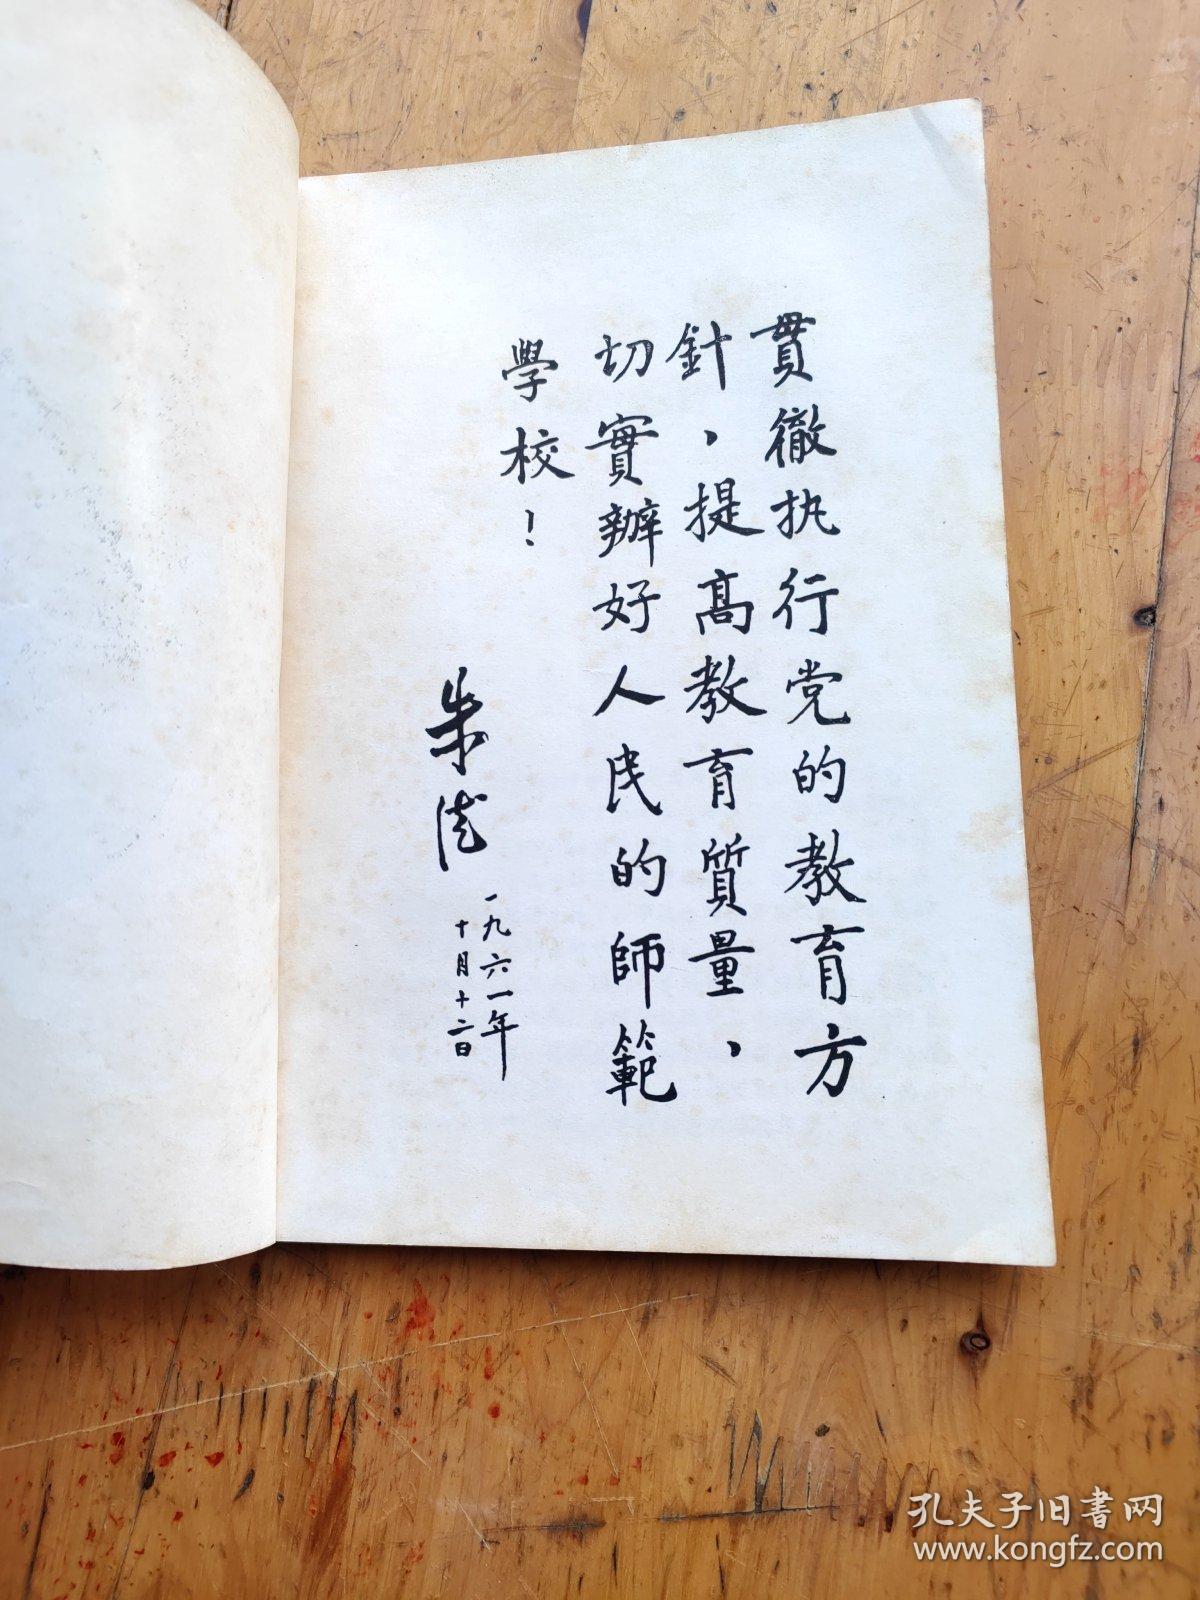 貫徹执行党的教育方
針，提高教育質量，
切實辦好人民的師範
學校！
朱德
一九六一年
十月十二日
孔夫子旧书网
www.kongfz.com